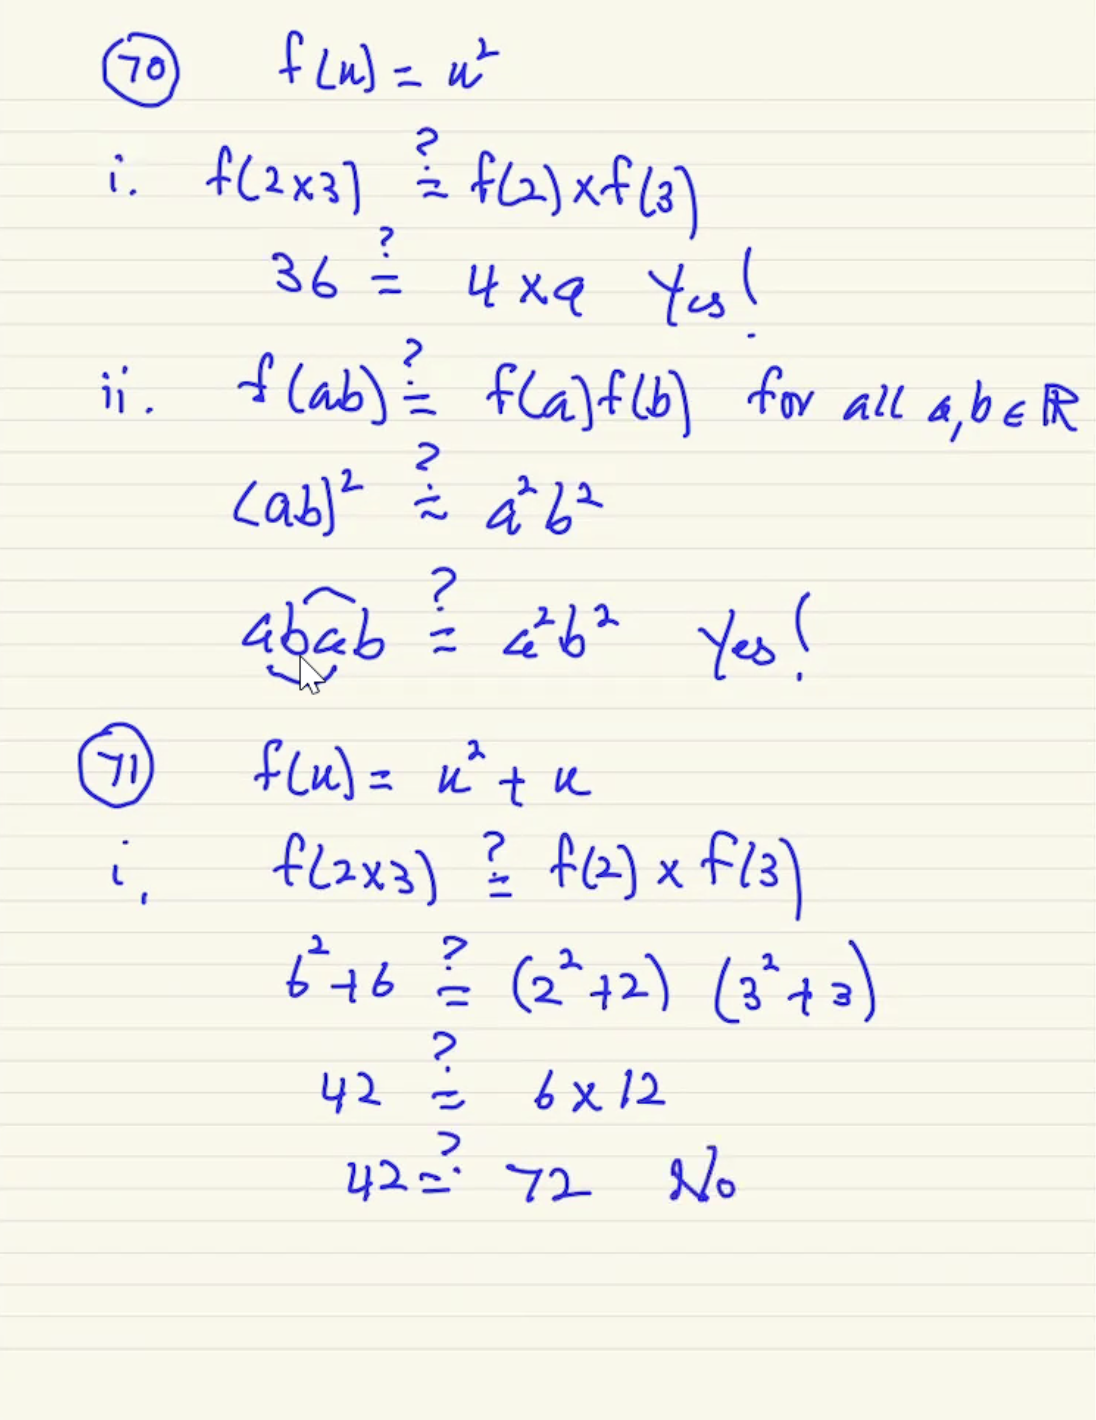 70 f(x) = x²
i. f(2×3) ≟ f(2)×f(3)
36 ≟ 4×9 Yes!
ii. f(ab) ≟ f(a)f(b) for all a,b ∈ ℝ
(ab)² ≟ a²b²
abab ≟ a²b² Yes!
71 f(x) = x² + x
i. f(2×3) ≟ f(2) × f(3)
6²+6 ≟ (2²+2) (3²+3)
42 ≟ 6×12
42 ≟ 72 No